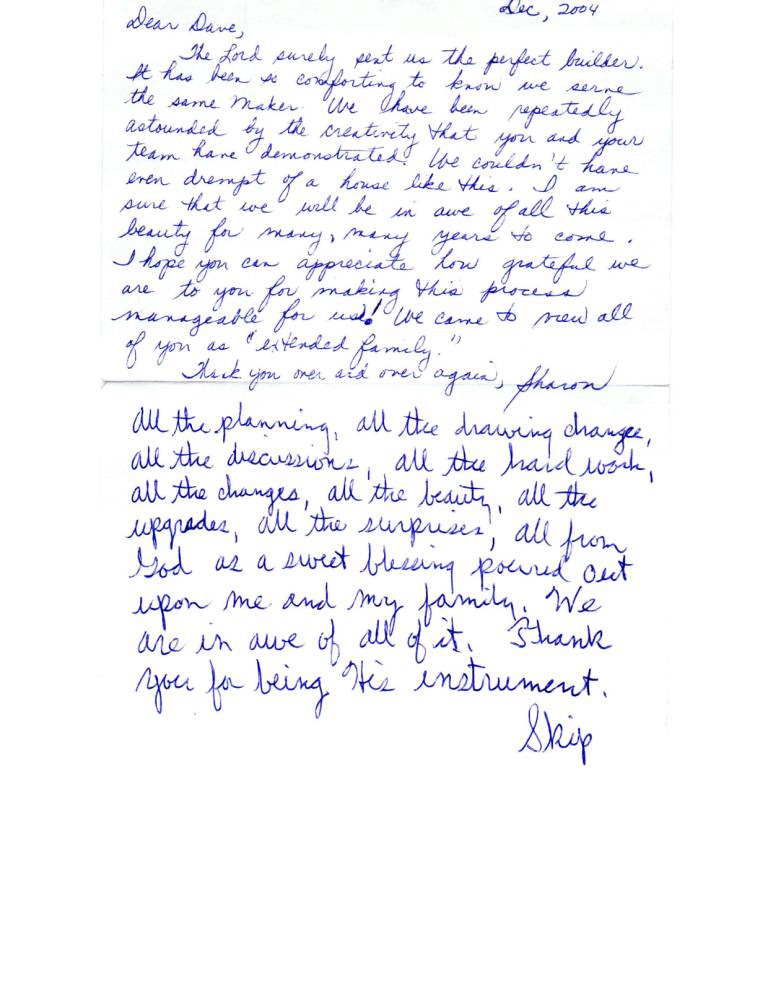 Dec, 2004
Dear Dave,
The Lord surely sent us the perfect builder.
It has been so comforting to know we serve
the same Maker. We have been repeatedly
astounded by the creativity that you and your
team have demonstrated! We couldn't have
even drempt of a house like this. I am
sure that we will be in awe of all this
beauty for many, many years to come.
I hope you can appreciate how grateful we
are to you for making this process
manageable for us! We came to view all
of you as "extended family."
Thank you over and over again, Sharon
All the planning, all the drawing changes,
all the discussions, all the hard work,
all the changes, all the beauty, all the
upgrades, all the surprises, all from
God as a sweet blessing poured out
upon me and my family. We
are in awe of all of it. Thank
you for being His instrument.
Skip